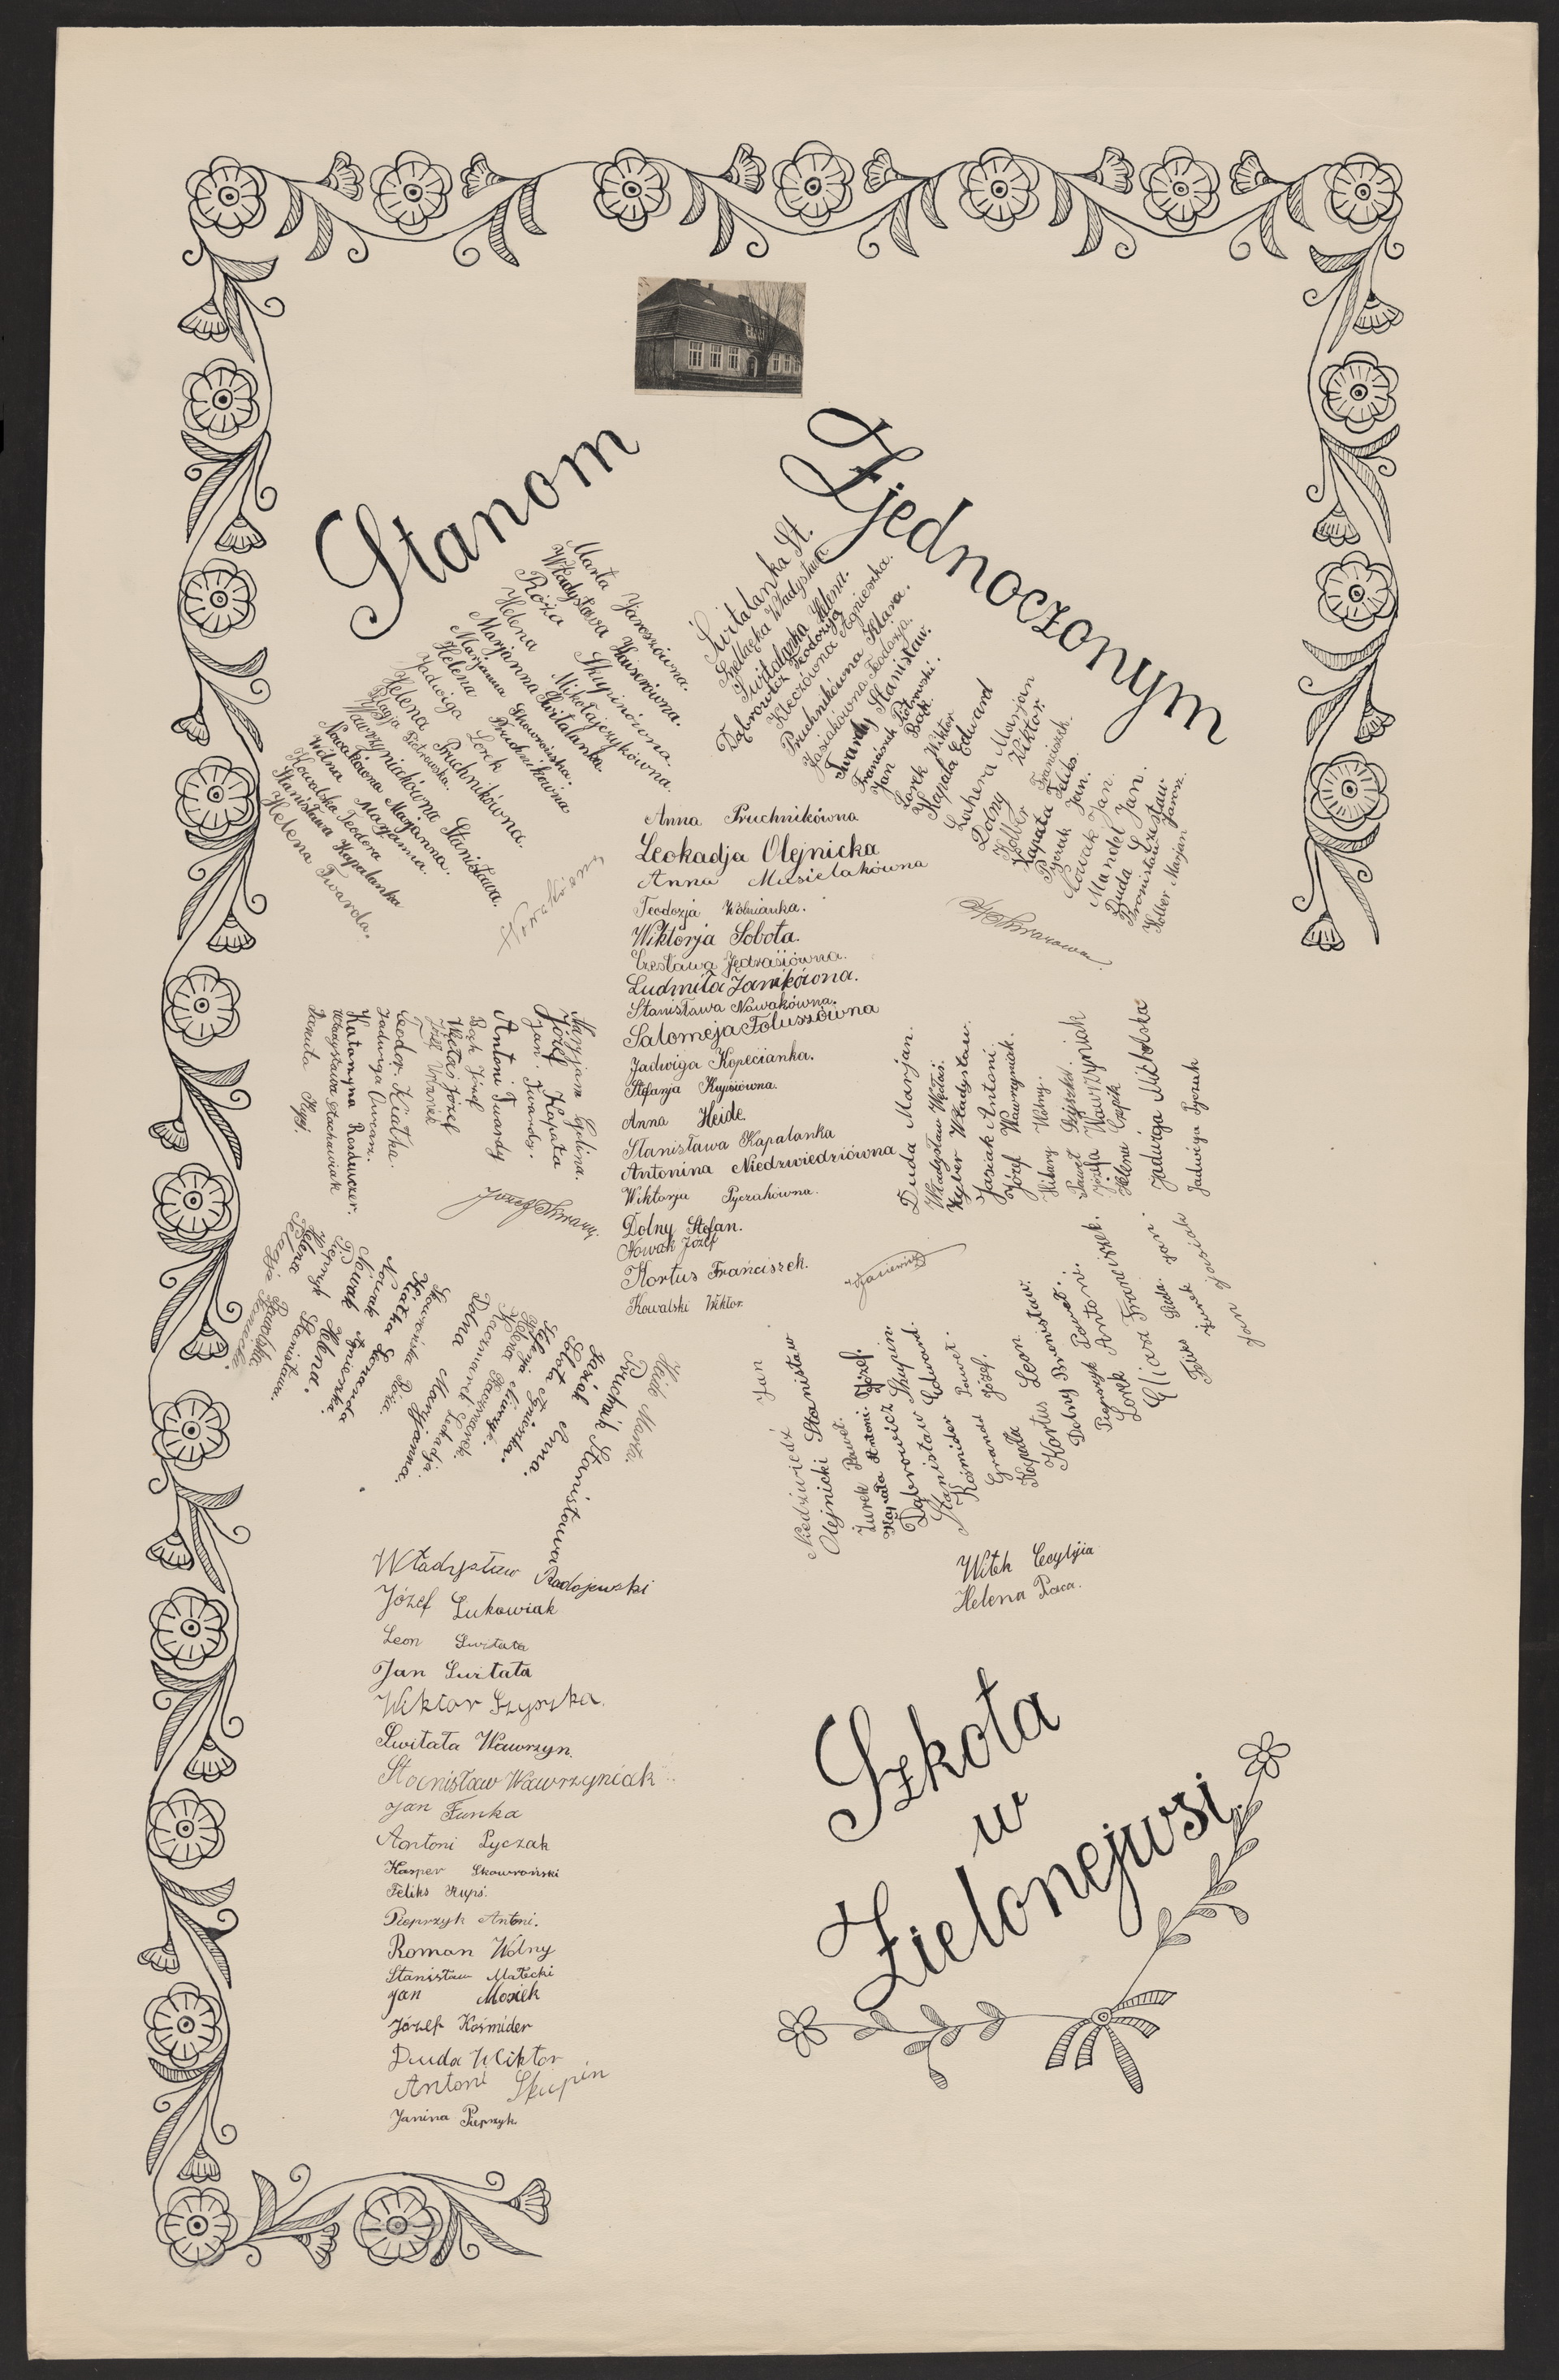 Stanom
Zjednoczonym
Marta Jaroszówna.
Władysława Wawrówna.
Róża Skupinówna
Helena Mikołajczykówna.
Marjanna Świtalanka.
Marjanna Skowrońska.
Helena Pruchnikówna
Jadwiga Lorek
Helena Pruchnikówna.
Pelagja Piotrowska.
Wawrzyniakówna Stanisława.
Nowakówna Marjanna.
Wolna Marjanna.
Kowalska Teodora
Stanisława Kapalanka
Helena Twarda.
Świtalanka St.
Świtalanka Helena.
Dąbrowicz Teodozja
Kleczówna Agnieszka.
Pruchnikówna Klara.
Jasiakówna Teodozja.
Twardy Stanisław.
Franciszek Piotrowski.
Jan Bąk.
Lorek Wiktor
Kapala Edward
Luhera Marjan
Dolny Wiktor.
Kolber Franciszek.
Kapała Feliks.
Pyczak Jan.
Nowak Jan.
Mandel Jan.
Duda Czesław
Bronisław Jarosz.
Kolber Marjan
Anna Pruchnikówna
Leokadja Olejnicka
Anna Musielakówna
Teodozja Wolnianka.
Wiktorja Sobota.
Czesława Jędrasiówna.
Ludmiła Janikówna.
Stanisława Nowakówna.
Salomeja Foluszówna
Jadwiga Kopecianka.
Stefanja Kupsiówna.
Anna Heide.
Stanisława Kapalanka
Antonina Niedzwiedziówna
Wiktorja Pyczakówna.
Dolny Stefan.
Nowak Józef
Kortus Franciszek.
Kowalski Wiktor.
Józef Kapała
Jan Twardy.
Antoni Twardy
Bąk Józef
Wełas Józef
Teodor Kiałka.
Jadwiga Owczarz.
Katarzyna Rosduczer.
Władysława Stachowiak
Danuta Kupś.
Józef Skrany
Duda Marjan.
Władysław Wełas.
Kyber Władysław.
Jasiak Antoni.
Józef Wawrzyniak.
Hilary Wolny.
Józefa Wawrzyniak
Helena Czapik
Jadwiga Mibolska
Jadwiga Pyczak
Heide Marta.
Pruchnik Stanisława
Jasiak Anna.
Słota Agnieszka.
Kaczmarek Leokadja.
Dolna Maryjanna.
Skowrońska Róża.
Kiałka Leonarda
Nowak Agnieszka.
Nowak Helena.
Pieprzyk Stanisława.
Niedzwiedź Jan
Olejnicki Stanisław
Żurek Paweł.
Kapała Antoni Józef.
Dąbrowicz Skupin.
Stanisław Edward.
Kośmider Paweł.
Grandt Józef.
Kapała Leon
Kortus Bronisław.
Dolny Paweł.
Pieprzyk Antoni.
Lorek Franciszek.
Eliasz Jan.
Żurek
Jan Jasiak
Władysław Radojewski
Józef Lukowiak
Leon Świtała
Jan Świtała
Wiktor Szyszka.
Świtała Wawrzyn.
Stanisław Wawrzyniak
Jan Funka
Antoni Pyczak
Kasper Skowroński
Feliks Kupś.
Pieprzyk Antoni.
Roman Wolny
Stanisław Małecki
Jan Mosiek
Józef Kośmider
Duda Wiktor
Antoni Skupin
Janina Pieprzyk
Witek Cecylja
Helena Raca.
Szkoła
w
Zielonejwsi.